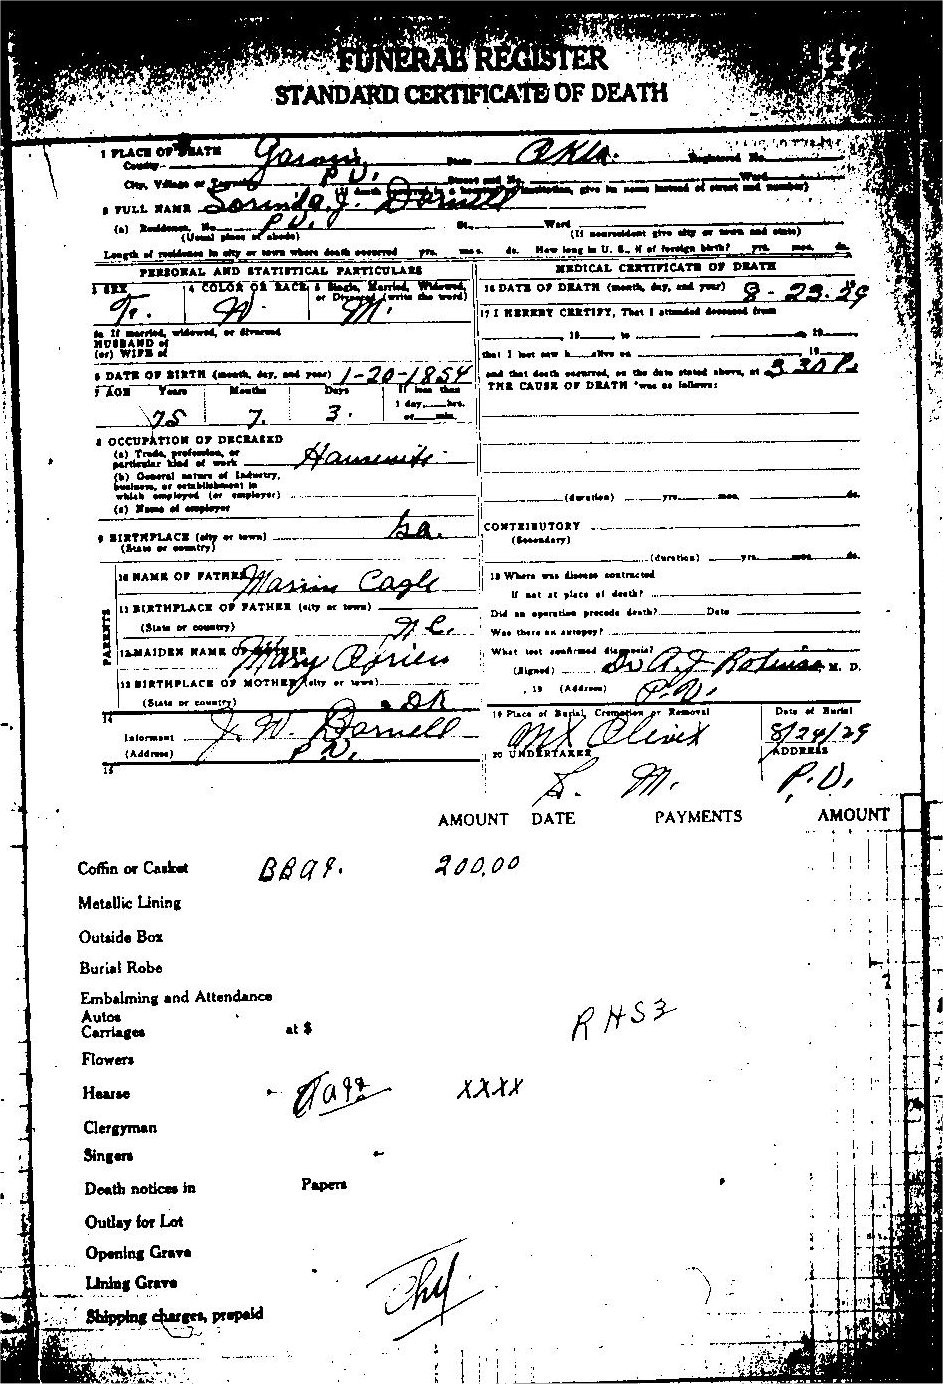 FUNERAL REGISTER
STANDARD CERTIFICATE OF DEATH
1 PLACE OF DEATH
County Garvin State Okla. Registered No.
City, Village or P.V. Street and No. Ward
(If death occurred in a hospital institution, give its name instead of street and number)
2 FULL NAME J. Darnell
(a) Residence, No. P.V. St., Ward
(Usual place of abode) (If nonresident give city or town and state)
Length of residence in city or town where death occurred yrs. mos. ds. How long in U. S., if of foreign birth? yrs. mos. ds.
PERSONAL AND STATISTICAL PARTICULARS
3 SEX 4 COLOR OR RACE 5 Single, Married, Widowed, or Divorced (write the word)
F. W. M.
5a If married, widowed, or divorced
HUSBAND of
(or) WIFE of
6 DATE OF BIRTH (month, day, and year) 1-20-1854
7 AGE Years Months Days If less than
1 day, hrs.
or min.
75 7. 3.
8 OCCUPATION OF DECEASED
(a) Trade, profession, or
particular kind of work Housewife
(b) General nature of Industry,
business, or establishment in
which employed (or employer)
(c) Name of employer
9 BIRTHPLACE (city or town) Ga.
(State or country)
PARENTS
10 NAME OF FATHER Marion Cagle
11 BIRTHPLACE OF FATHER (city or town)
(State or country) N.C.
12 MAIDEN NAME OF MOTHER Mary Obrien
13 BIRTHPLACE OF MOTHER (city or town)
(State or country) DK
14
Informant J. W. Darnell
(Address) P.V.
15
MEDICAL CERTIFICATE OF DEATH
16 DATE OF DEATH (month, day, and year) 8-23-29
17 I HEREBY CERTIFY, That I attended deceased from
, 19 , to , 19
that I last saw h alive on , 19
and that death occurred, on the date stated above, at 3 30 P.
THE CAUSE OF DEATH *was as follows:
(duration) yrs. mos. ds.
CONTRIBUTORY
(Secondary)
(duration) yrs. mos. ds.
18 Where was disease contracted
if not at place of death?
Did an operation precede death? Date
Was there an autopsy?
What test confirmed diagnosis?
(Signed) Dr A. J. M. D.
, 19 (Address) P.V.
19 Place of Burial, Cremation or Removal Date of Burial
Mt Olivet 8/24/29
20 UNDERTAKER ADDRESS
M. P.V.
AMOUNT DATE PAYMENTS AMOUNT
Coffin or Casket 200.00
Metallic Lining
Outside Box
Burial Robe
Embalming and Attendance
Autos
Carriages at $
RHS3
Flowers
Hearse XXXX
Clergyman
Singers
Death notices in Papers
Outlay for Lot
Opening Grave
Lining Grave
Shipping charges, prepaid